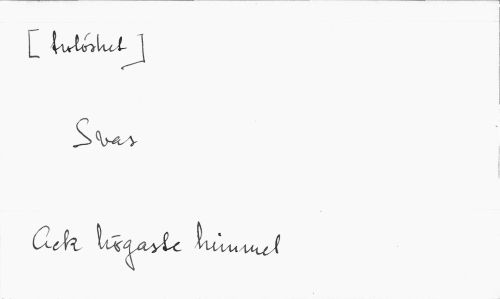 [trolöshet]
Svas
Ack högaste himmel